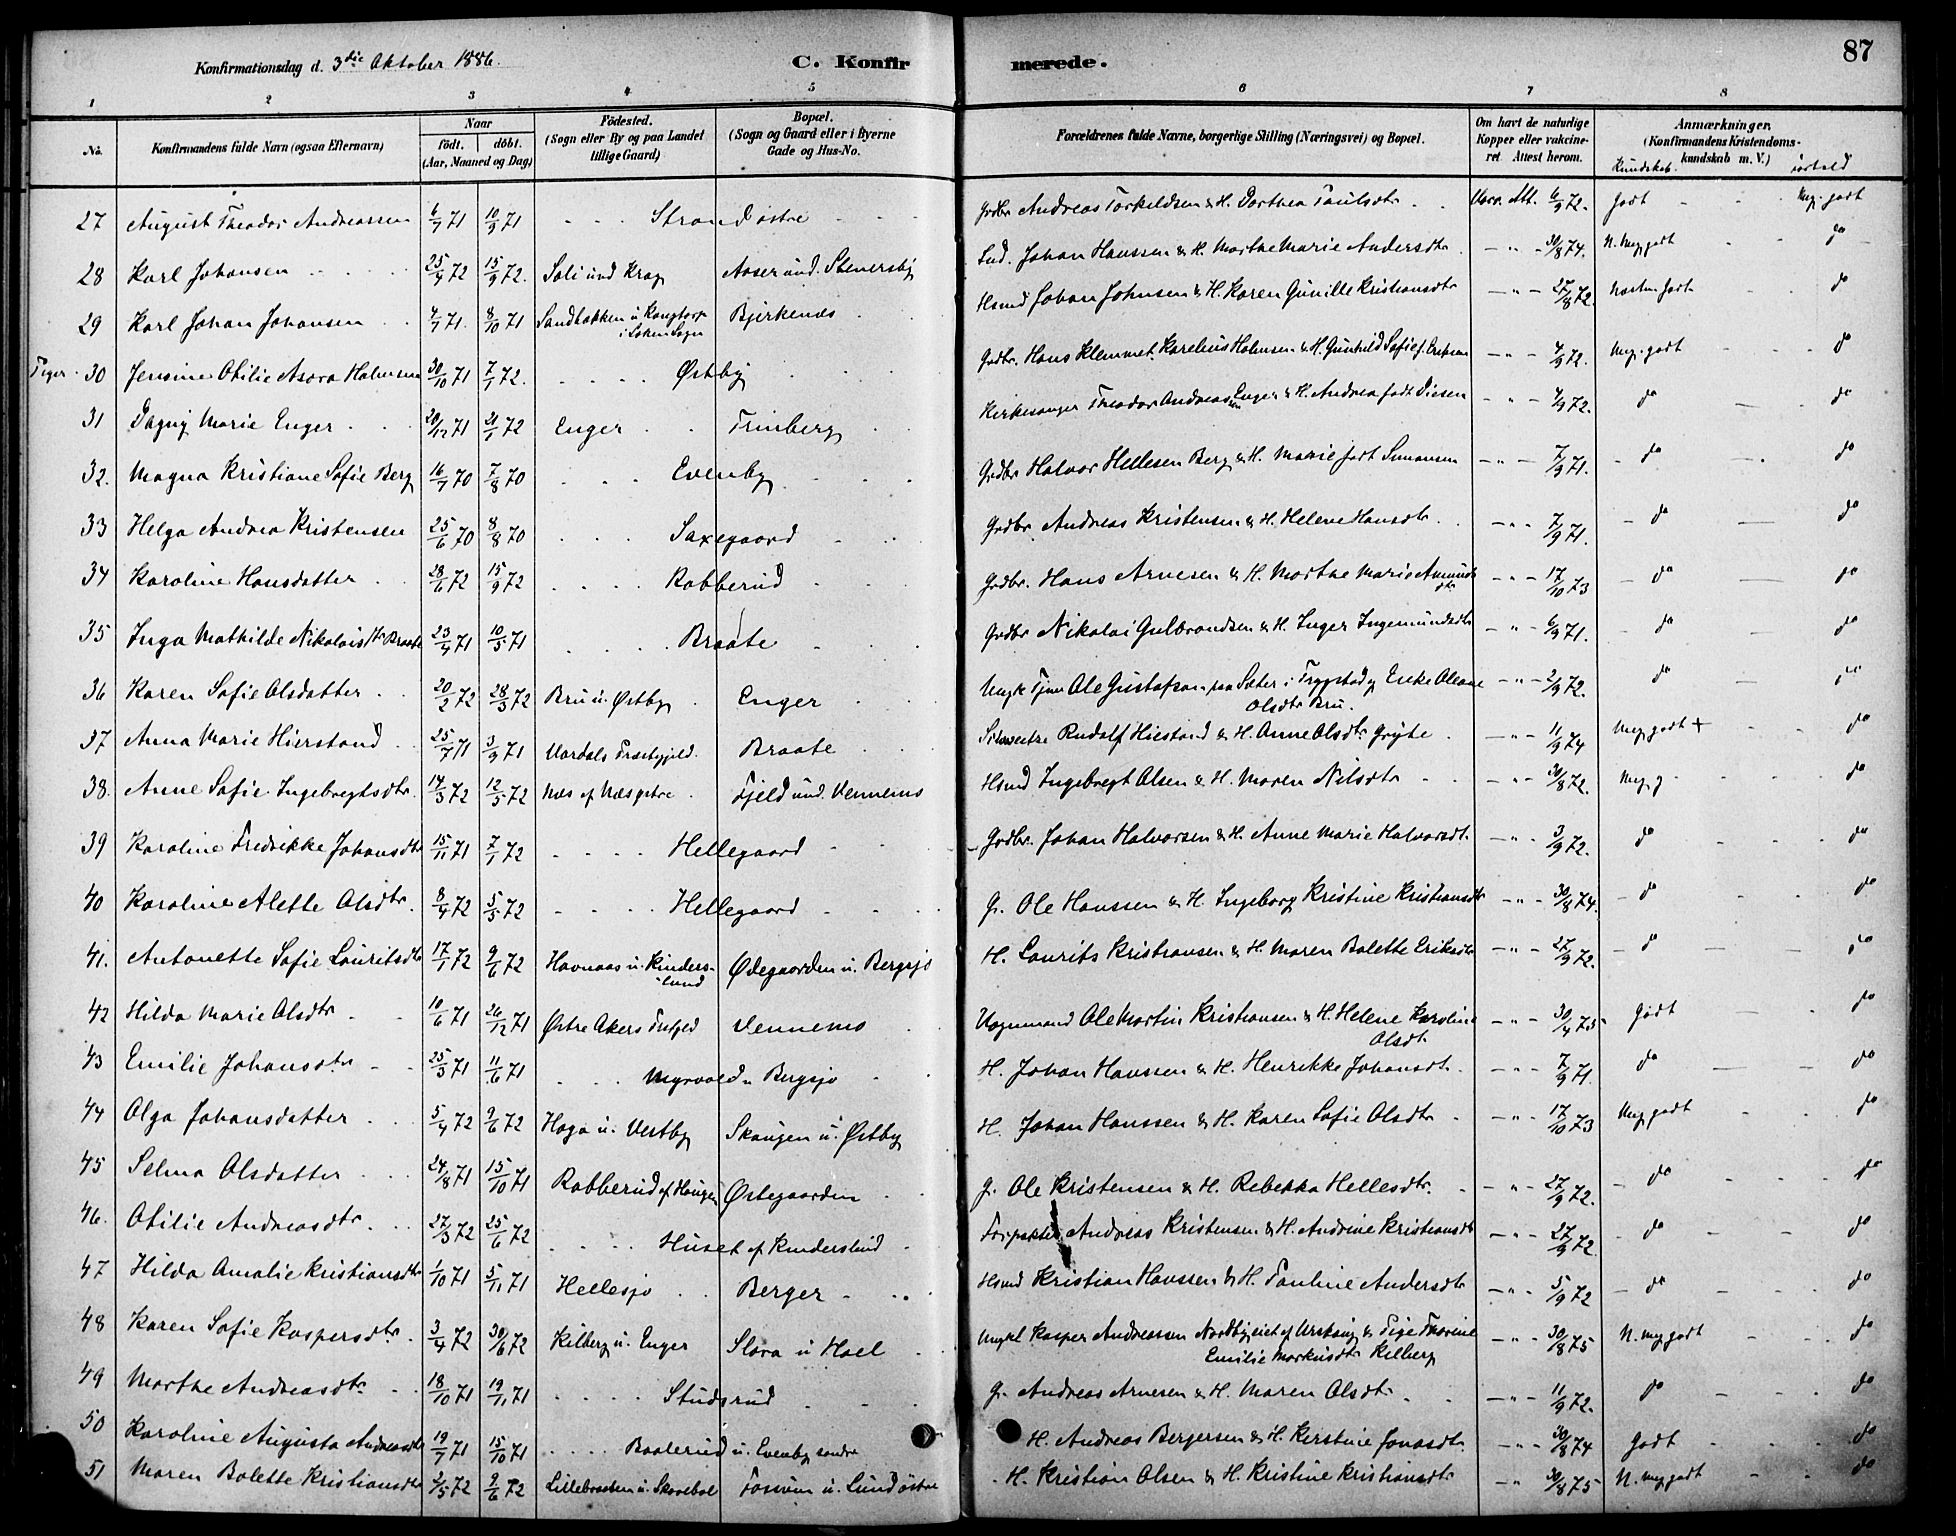 Konfirmationsdag d. 3die Oktober 1886.
C. Konfir
merede.
87
1 2 3 4 5 6 7 8
No.
Konfirmandens fulde Navn (ogsaa Efternavn)
Naar
født. døbt.
(Aar, Maaned og Dag)
Fødested.
(Sogn eller By og paa Landet
tillige Gaard)
Bopæl.
(Sogn og Gaard eller i Byerne
Gade og Hus-No.
Forældrenes fulde Navne, borgerlige Stilling (Næringsvei) og Bopæl.
Om havt de naturlige
Kopper eller vakcine-
ret Attest herom.
Anmærkninger.
(Konfirmandens Kristendoms-
kundskab m. V.)
Kundskab.
27 August Theodor Andreassen 6/7 71 10/9 71 Strand østre Grdbr Andreas Torkildsen & H. Dorthea Paulsdtr Vacc. Att. 6/9 72. Godt Meg. godt
28 Karl Johansen 25/4 72 15/9 72. Soli und Krog Aaser und. Stenersby Ind. Johan Hanssen & H. Marthe Marie Andersdtr - " - 30/8 74. N. Meg godt do
29 Karl Johan Johansen 4/7 71. 8/10 71 Sandbakken u Kongtorp i Søken Sogn Bjerkenæs Hsmd Johan Johnsen & H. Karen Gunille Kristiansdtr - " - 27/8 72. Næsten godt do
30 Jensine Otilie Asora Halmsen 30/10 71 7/1 72. Østby Grdbr. Hans Klemmet Karelius Halmsen & H. Gunhild Sofie f. Eriksen - " - 4/9 72. Meg. godt do
31 Dagny Marie Enger 20/12 71 21/1 72 Enger Trinberg Kirkesanger Theodor Andreassen Enger & H. Andrea født Diesen - " - 4/9 72. do do
32. Magna Kristiane Sofie Berg 16/7 70 7/8 70 Evenby Grdbr Halvor Hellesen Berg & H. Marie født Simonsen - " - 7/9 71. do do
33 Helga Andrea Kristensen 25/6 70 8/8 70 Saxegaard Grdbr. Andreas Kristensen & H. Helene Hansdtr - " - 7/9 71. do do
34 Karoline Hansdatter 28/6 72 15/9 72 Rabberud Grdbr. Hans Arnesen & H. Marthe Marie Amunds dtr - " - 17/10 73 do do
35 Inga Mathilde Nikolaisdtr Braate 23/4 71 10/5 71 Braate Grdbr Nikolai Gulbrandsen & H. Inger Ingemundsdtr - " - 6/9 71. do do
36 Karen Sofie Olsdatter 20/2 72 28/3 72 Bru u. Østby Enger Ungk Tjener Ole Gustafson paa Sæter i Trygstad og Enke Oleane Olsdtr Bru. - " - 2/9 72. do do
37 Anna Marie Hierstand 25/7 71 3/9 71 Vardals Præstegjeld. Braate Rudolf Hiestand & H. Anne Olsdtr Gryte - " - 11/9 74 Meg. godt + do
38. Anne Sofie Ingebregtsdtr. 14/3 72 12/5 72 Næs af Næs østre Fjeld und. Vennemo Hsmd Ingebregt Olsen & H. Maren Nilsdtr - " - 30/8 72. Meg. g do
39 Karoline Fredrikke Johansdtr 15/11 71 7/1 72 Hellegaard Grdbr. Johan Halvorsen & H. Anne Marie Halvorsdt. - " - 3/9 72. do do
40 Karoline Alette Olsdtr. 8/4 72 5/5 72 Hellegaard G. Ole Hanssen & H. Ingeborg Kristine Kristiansdtr - " - 30/8 74. do do
41. Antonette Sofie Lauritsdtr 17/1 72 9/6 72 Havnaas u. Kinders-lund Ødegaarden u. Bergsjø H. Laurits Kristiansen & H. Maren Bolette Eriksdtr - " - 27/9 72. do do
42 Hilda Marie Olsdtr 10/6 71 26/12 71 Østre Akers Prstgjed Vennemo Vognmand Ole Martin Kristiansen & H. Helene Karoline Olsdt. - " - 30/4 75 Godt do
43 Emilie Johansdtr 25/3 71 11/6 71 Myrvold u Bergsjø H. Johan Hanssen & H. Henrikke Johansdt. - " - 7/9 71. do do
44 Olga Johansdatter 5/4 72 9/6 72 Haga u. Vestby Skaugen u. Østby H. Johan Hanssen & H. Karen Sofie Olsdtr - " - 17/10 73 Meg godt do
45 Selma Olsdatter 24/8 71 15/10 71 Rabberud af Haugen Østegaarden G. Ole Kristensen & H. Rebekka Hellesdtr. - " - 27/9 72. do do
46. Otilie Andreasdtr. 27/3 72 25/6 72 Huset af Kinderslund Forpakter Andreas Kristensen & H. Andrine Kristiansdt - " - 27/9 72. do do
47 Hilda Amalie Kristiansdtr 1/10 71 5/11 71 Hellesjø Berger Hsmd Kristian Hanssen & H. Pauline Andersdtr - " - 5/9 72 do do
48 Karen Sofie Kaspersdtr. 3/4 72 30/6 72 Kilberg u. Enger Slora u Hael Ungkl Kasper Andreassen Nordbyeiet af Urskoug & Pige Thorine Emilie Markusdtr Kilberg - " - 30/8 75 N. meg godt do
49 Marthe Andreasdtr 18/10 71 19/11 71 Studsrud G. Andreas Arnesen & H. Maren Olsdtr - " - 11/9 72. do do
50 Karoline Augusta Andreasdtr 19/7 71 15/10 71 Baalerud u. Evenby søndre H. Andreas Bergersen & H. Kerstine Jonasdt. - " - 30/8 74 Godt do
51 Maren Bolette Kristiansdtr 2/5 72 9/6 72 Lillebraaten u. Skarebøl Fossum u. Lund østre H. Kristian Olsen & H. Kristine Kristiansdtr - " - 30/8 75 N. meg godt do